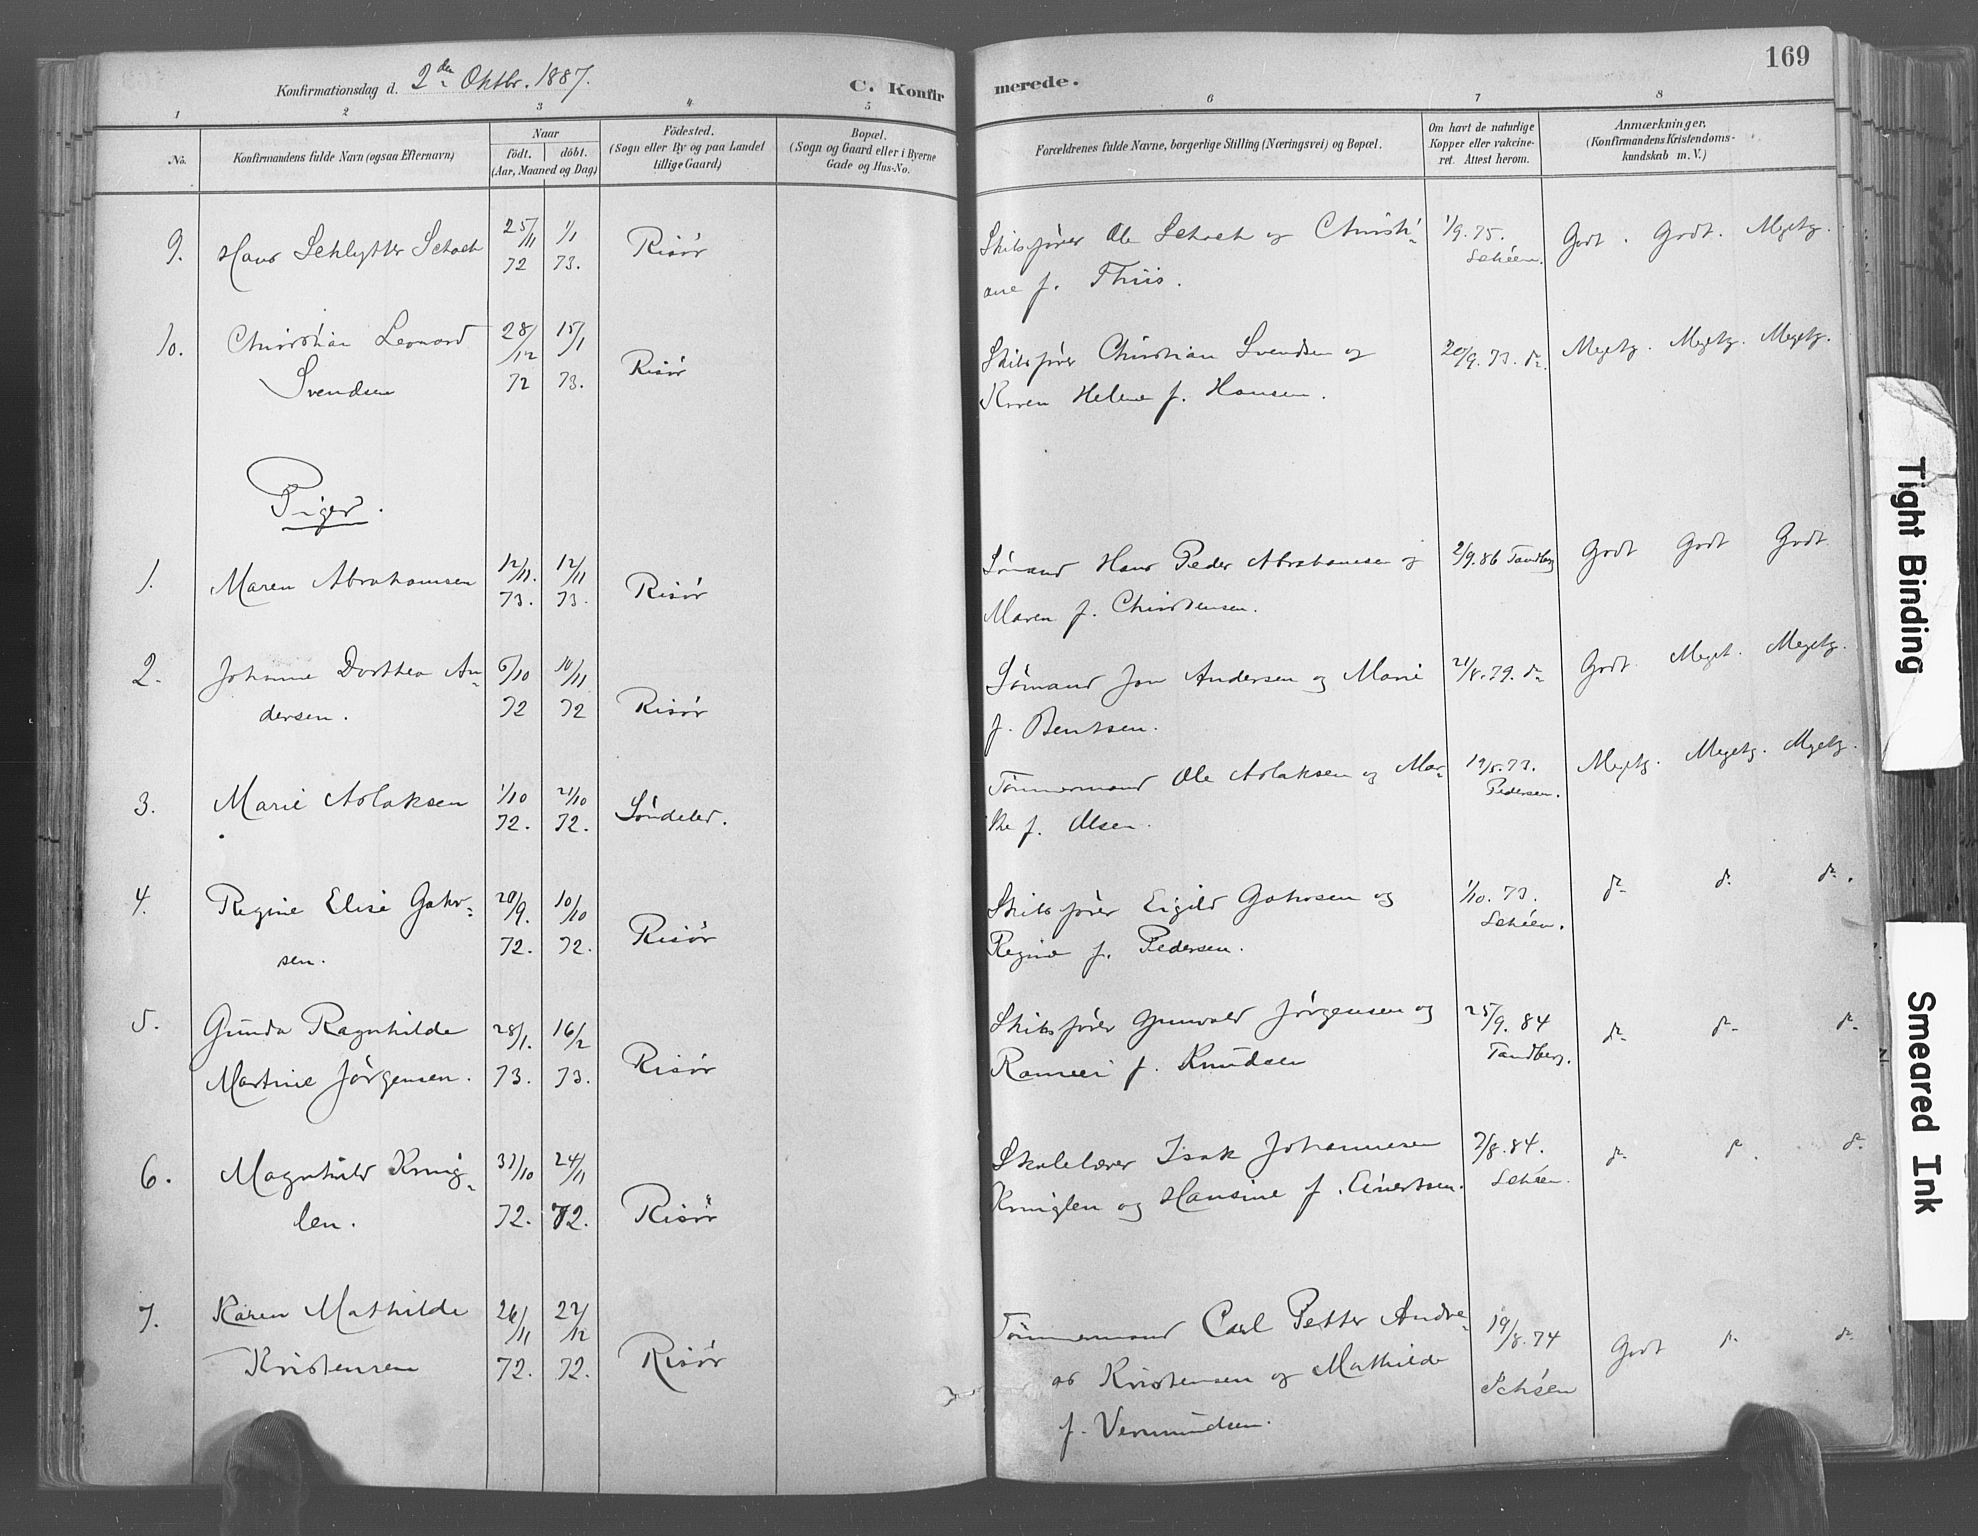 169
Konfirmationsdag d. 2den Oktbr. 1887.
C. Konfir
merede.
1 2 3 4 5 6 7 8
No.
Konfirmandens fulde Navn (ogsaa Efternavn)
Naar
født. døbt.
(Aar, Maaned og Dag)
Fødested.
(Sogn eller By og paa Landet
tillige Gaard)
Bopæl.
(Sogn og Gaard eller i Byerne
Gade og Hus-No.
Forældrenes fulde Navne, borgerlige Stilling (Næringsvei) og Bopæl.
Om havt de naturlige
Kopper eller vakcine-
ret. Attest herom.
Anmærkninger.
(Konfirmandens Kristendoms-
kundskab m. V.)
9. Hans Schlytter 25/11 72 1/1 73. Risør
Skibsfører Ole og Christi-
ane f. Thiis.
1/9. 75. Godt. Godt. Megetg.
10. Christian Leonard
Svendsen
28/12 72 15/1 73. Risør
Skibsfører Christian Svendsen og
Karen Helene f. Hansen.
20/9. 73. do. Megetg. Megetg. Megetg.
Piger.
1. Maren Abrahamsen 12/11. 73. 12/11 73. Risør
Sømand Hans Peder Abrahamsen og
Maren f. Christensen.
2/9. 86 Tandberg Godt Godt Godt
2. Johanne Dorthea An-
dersen.
6/10 72 10/11 72 Risør
Sømand Jon Andersen og Marie
f. Bentsen.
21/8. 79. do Godt. Meget. Megetg.
3. Marie Aslaksen 1/10 72. 21/10 72. Søndeled.
Tømmermand Ole Aslaksen og Mar-
the f. Olsen.
19/5. 73.
Pedersen.
Megetg. Megetg. Megetg.
4. Regine Elise
sen.
20/9. 72. 10/10 72. Risør
Skibsfører Eigild og
Regine f. Pedersen.
1/10. 73.
do do. do.
5. Gunda Ragnhilde
Martine Jørgensen.
28/1. 73. 16/2 73. Risør
Skibsfører Gunvald Jørgensen og
f. Knudsen
25/9. 84
Tandberg.
do do do
6. Magnhild Krnig-
len.
31/10 72. 24/11 72. Risør
Skolelærer Isak Johannesen
Krniglen og Hansine f. Eivertsen.
7/8. 84.
do do. do
7. Karen Mathilde
Kristensen
26/11 72. 27/12 72. Risør
Tømmermand Carl Petter Andre-
as Kristensen og Mathilde
f. Vermundsen.
19/8. 74
Godt do do
Tight Binding
Smeared Ink